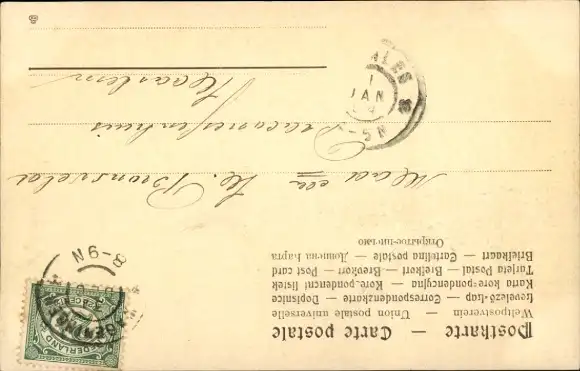 Postkarte — Carte postale
Weltpostverein — Union postale universelle
Levelező-Lap — Correspondenzkarte — Dopisnice
Karta korespondencyjna — Kore-spondenční lístek
Tarjeta Postal — Briefkort — Brevkort — Post card
Briefkaart — Cartolina postale — Дописна карта
Открытое-письмо
NEDERLAND
8-9N
1
JAN
-5N
Mad
Bronsveld
Diaconessenhuis
Haarlem